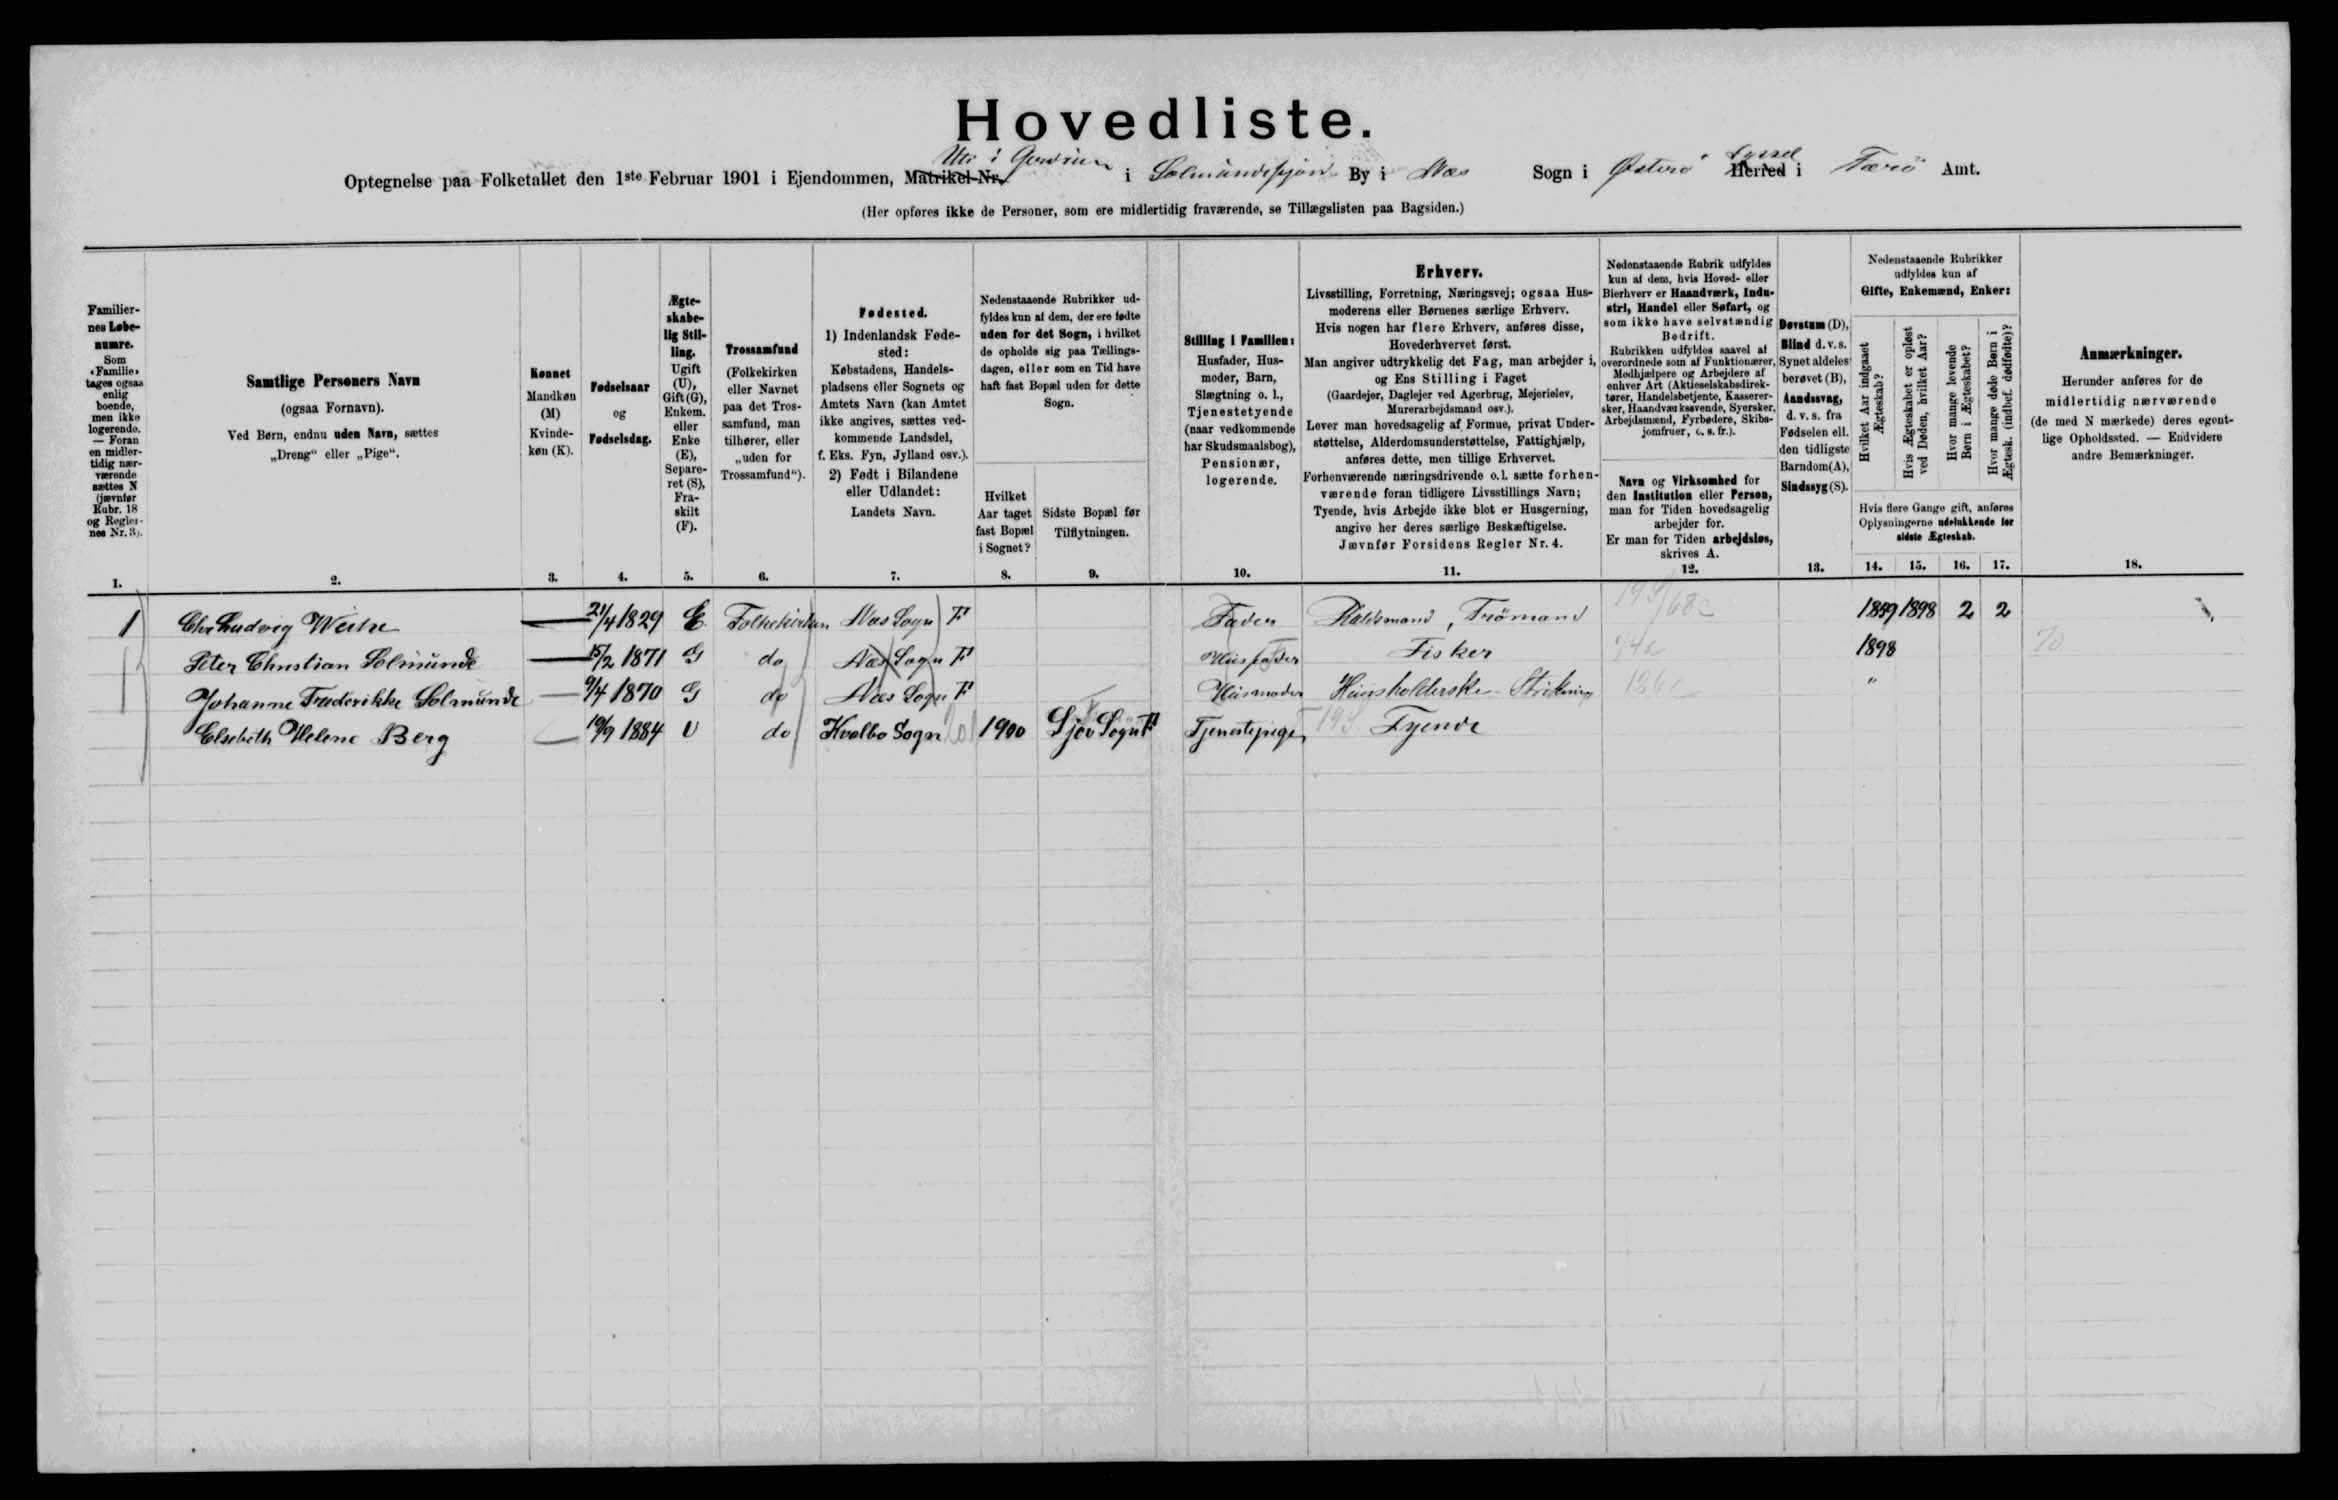 Hovedliste.
Optegnelse paa Folketallet den 1ste Februar 1901 i Ejendommen, Matrikel-Nr. Uti i i Solmundefjord By i Næs Sogn i Østerø Herred Syssel i Færø Amt.
(Her opføres ikke de Personer, som ere midlertidig fraværende, se Tillægslisten paa Bagsiden.)
Familier-
nes Løbe-
numre.
Som
«Familie»
tages ogsaa
enlig
boende,
men ikke
logerende.
— Foran
en midler-
tidig nær-
værende
sættes N
(jævnfør
Rubr. 18
og Regler-
nes Nr. 3).
1.
Samtlige Personers Navn
(ogsaa Fornavn).
Ved Børn, endnu uden Navn, sættes
„Dreng“ eller „Pige“.
2.
Kønnet
Mandkøn
(M)
Kvinde-
køn (K).
3.
Fødselsaar
og
Fødselsdag.
4.
Ægte-
skabe-
lig Stil-
ling.
Ugift
(U),
Gift (G),
Enkem.
eller
Enke
(E),
Separe-
ret (S),
Fra-
skilt
(F).
5.
Trossamfund
(Folkekirken
eller Navnet
paa det Tros-
samfund, man
tilhører, eller
„uden for
Trossamfund“).
6.
Fødested.
1) Indenlandsk Føde-
sted:
Købstadens, Handels-
pladsens eller Sognets og
Amtets Navn (kan Amtet
ikke angives, sættes ved-
kommende Landsdel,
f. Eks. Fyn, Jylland osv.).
2) Født i Bilandene
eller Udlandet:
Landets Navn.
7.
Nedenstaaende Rubrikker ud-
fyldes kun af dem, der ere fødte
uden for det Sogn, i hvilket
de opholde sig paa Tællings-
dagen, eller som en Tid have
haft fast Bopæl uden for dette
Sogn.
Hvilket
Aar taget
fast Bopæl
i Sognet?
8.
Sidste Bopæl før
Tilflytningen.
9.
Stilling i Familien:
Husfader, Hus-
moder, Barn,
Slægtning o. l.,
Tjenestetyende
(naar vedkommende
har Skudsmaalsbog),
Pensionær,
logerende.
10.
Erhverv.
Livsstilling, Forretning, Næringsvej; ogsaa Hus-
moderens eller Børnenes særlige Erhverv.
Hvis nogen har flere Erhverv, anføres disse,
Hovederhvervet først.
Man angiver udtrykkelig det Fag, man arbejder i,
og Ens Stilling i Faget
(Gaardejer, Daglejer ved Agerbrug, Mejerielev,
Murerarbejdsmand osv.).
Lever man hovedsagelig af Formue, privat Under-
støttelse, Alderdomsunderstøttelse, Fattighjælp,
anføres dette, men tillige Erhvervet.
Forhenværende næringsdrivende o. l. sætte forhen-
værende foran tidligere Livsstillings Navn;
Tyende, hvis Arbejde ikke blot er Husgerning,
angive her deres særlige Beskæftigelse.
Jævnfør Forsidens Regler Nr. 4.
11.
Nedenstaaende Rubrik udfyldes
kun af dem, hvis Hoved- eller
Bierhverv er Haandværk, Indu-
stri, Handel eller Søfart, og
som ikke have selvstændig
Bedrift.
Rubrikken udfyldes saavel af
overordnede som af Funktionærer,
Medhjælpere og Arbejdere af
enhver Art (Aktieselskabsdirek-
tører, Handelsbetjente, Kasserer-
sker, Haandværkssvende, Syersker,
Arbejdsmænd, Fyrbødere, Skibs-
jomfruer, o. s. fr.).
Navn og Virksomhed for
den Institution eller Person,
man for Tiden hovedsagelig
arbejder for.
Er man for Tiden arbejdsløs,
skrives A.
12.
Døvstum (D),
Blind d. v. s.
Synet aldeles
berøvet (B),
Aandssvag,
d. v. s. fra
Fødselen ell.
den tidligste
Barndom (A),
Sindssyg (S).
13.
Nedenstaaende Rubrikker
udfyldes kun af
Gifte, Enkemænd, Enker:
Hvilket Aar indgaaet
Ægteskab?
Hvis Ægteskabet er opløst
ved Døden, hvilket Aar?
Hvor mange levende
Børn i Ægteskabet?
Hvor mange døde Børn i
Ægtesk. (indbef. dødfødte)?
Hvis flere Gange gift, anføres
Oplysningerne udelukkende for
sidste Ægteskab.
14. 15. 16. 17.
Anmærkninger.
Herunder anføres for de
midlertidig nærværende
(de med N mærkede) deres egent-
lige Opholdssted. — Endvidere
andre Bemærkninger.
18.
1 Chr Ludvig Weihe — 21/4 1829 E Folkekirken Næs Sogn F Fader Trømand 1859 1898 2 2
Peter Christian Solmunde — 15/2 1871 G do Næs Sogn F Husfader Fisker 74a 1898 70
Johanne Frederikke Solmunde — 9/4 1870 G do Næs Sogn F Husmoder Husholderske - Strikning 126c "
Elsebeth Helene Berg — 19/9 1884 U do Kvalbo Sogn 1900 Sjov Sogn F Tjenestepige Tyende